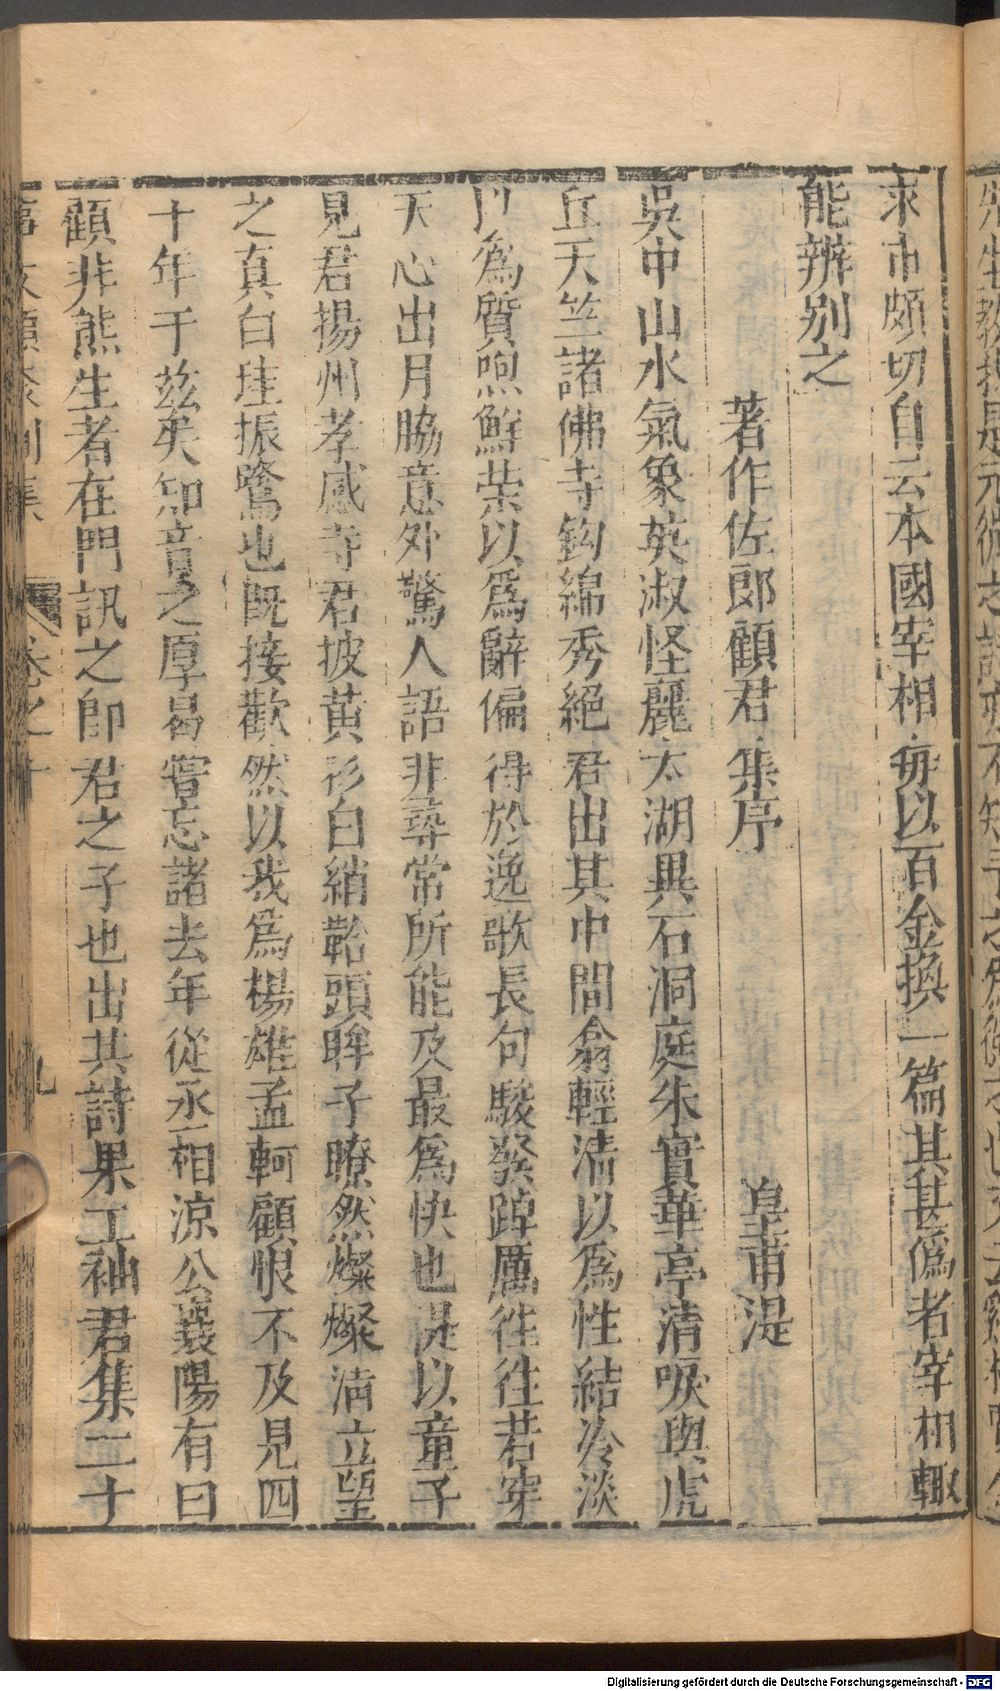 求市頗切自云本國宰相每以百金換一篇其甚僞者宰相輙
能辨别之
著作佐郎顧君集序
皇甫湜
吳中山水氣象英淑怪麗太湖異石洞庭朱實華亭清唳與虎
丘天竺諸佛寺鈎綿秀絕君出其中間翕輕清以為性結冷淡
以為質煦鮮榮以為辭偏得於逸歌長句駿發踔厲徃徃若穿
天心出月脇意外驚人語非尋常所能及最為快也湜以童子
見君揚州孝感寺君披黃衫白絹鞈頭眸子瞭然燦燦清立望
之真白珪振鷺也既接歡然以我為楊雄孟軻顧恨不及見四
十年于兹矣知音之厚曷嘗忘諸去年從丞相涼公襄陽有曰
顧非熊生者在門訊之即君之子也出其詩果工袖君集二十
卷之十
九
Digitalisierung gefördert durch die Deutsche Forschungsgemeinschaft - DFG